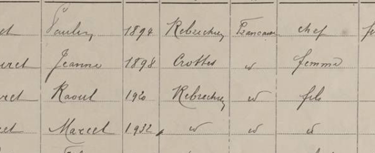 et Paulin 1894 Rebréchien Française chef
uret Jeanne 1898 Crottes d femme
ret Raoul 192 Rebréchien d fils
et Marcel 1932 d d d